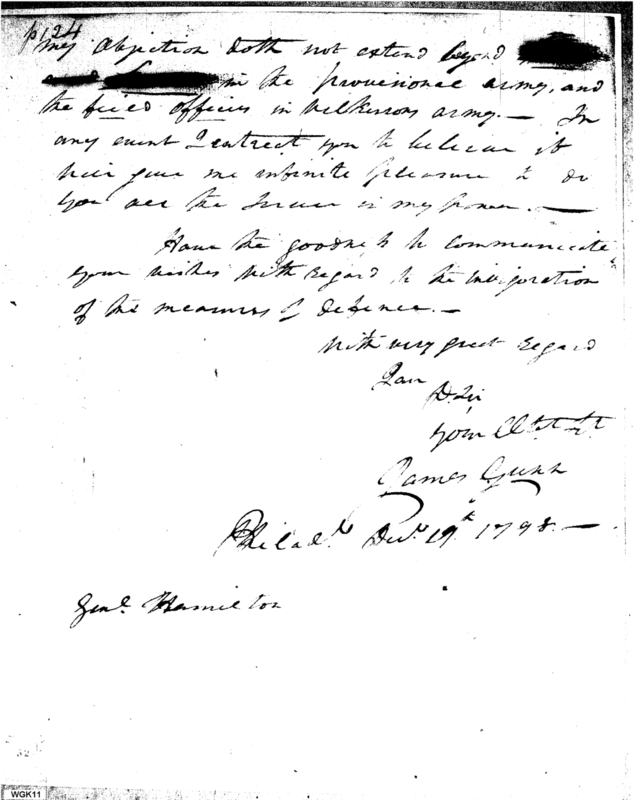 p124
my Objection doth not extend beyond
in the provisional army, and
the field officers in Wilkinsons army. — In
any event I entreat you to believe it
will give me infinite pleasure to do
you all the Service in my power. —
Have the goodness to communicate
your wishes with regard to the invigoration
of the measures of defence. —
With very great regard
I am
D. Sir
your Obt. St.
James Gunn
Philada. Decr. 19th. 1798. —
Genl. Hamilton
WGK11